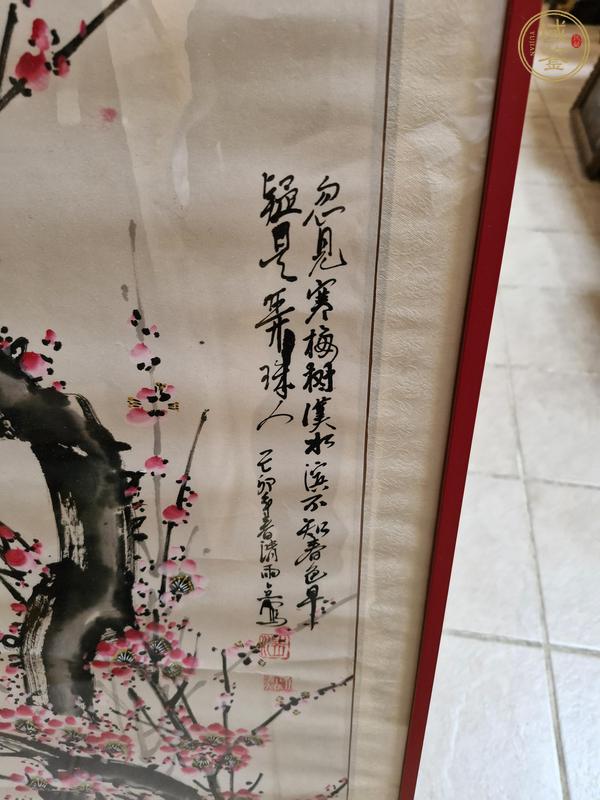 忽见寒梅树漢水滨不知春色早
疑是弄珠人
己卯年春清雨
YUJIAN